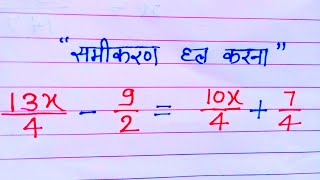 "समीकरण हल करना"
13x/4 - 9/2 = 10x/4 + 7/4